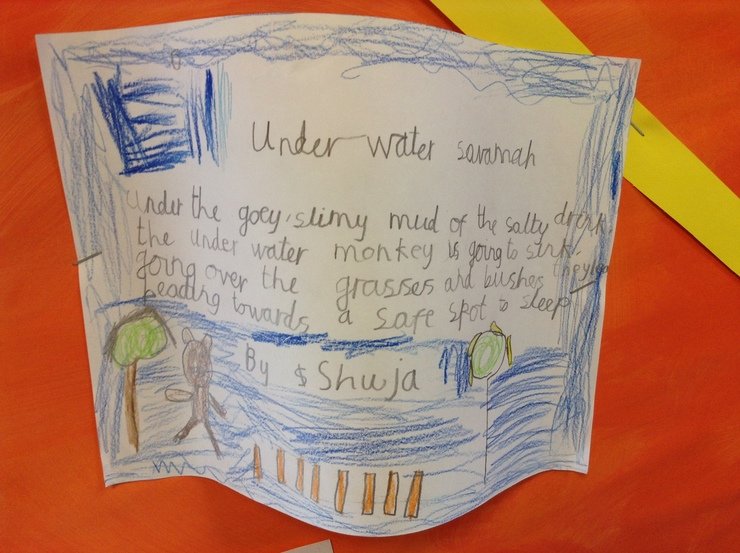 Under water savannah
Under the goey, slimy mud of the salty drink,
the under water monkey is going to sink.
going over the grasses and bushes they
heading towards a safe spot to sleep
By Shuja